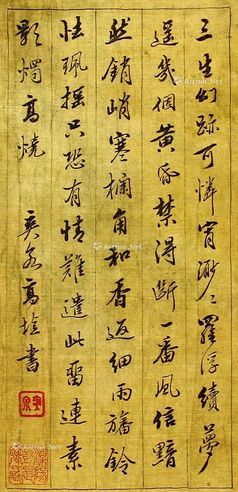 三生幻跡可憐宵渺渺羅浮續夢
遥幾個黄昏禁得斷一番風信黯
然銷峭寒欄角和香返細雨旛鈴
怯珮摇只恐有情難遣此留連素
影燭高燒
奕 高 書